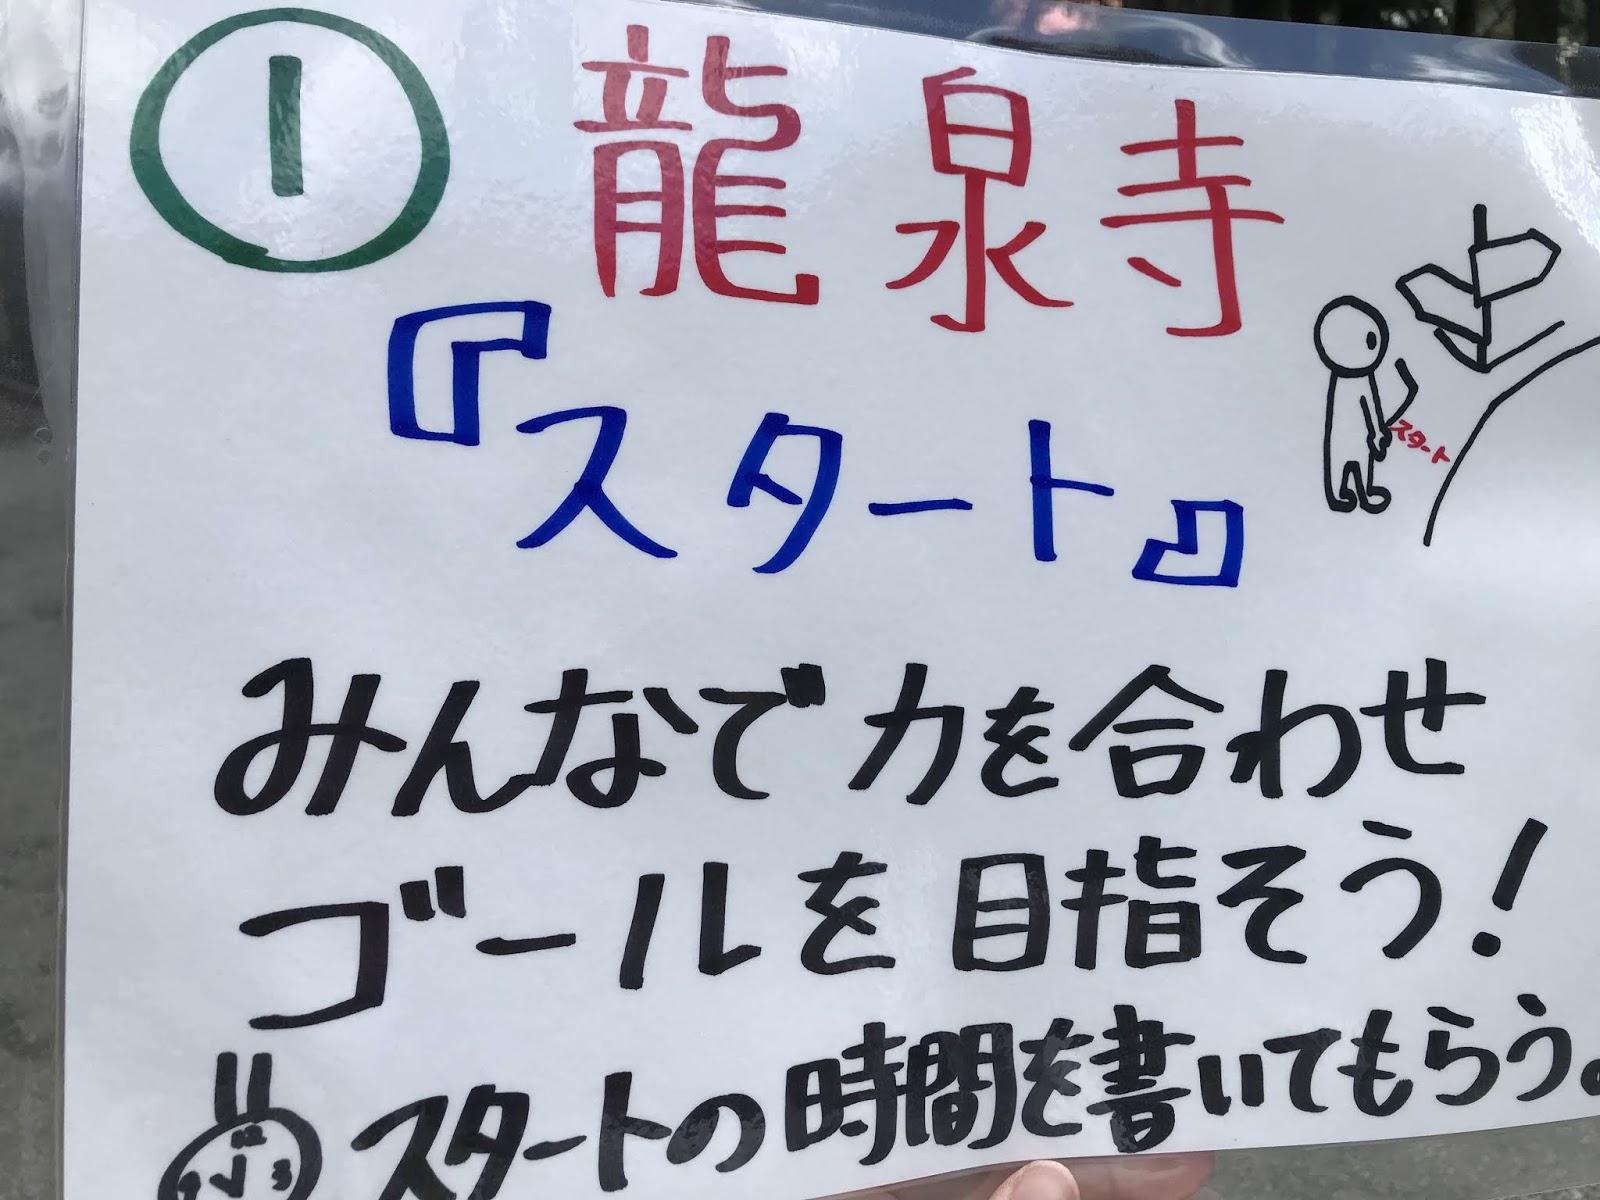 ① 龍泉寺
『スタート』
スタート
みんなで力を合わせ
ゴールを目指そう!
スタートの時間を書いてもらう。